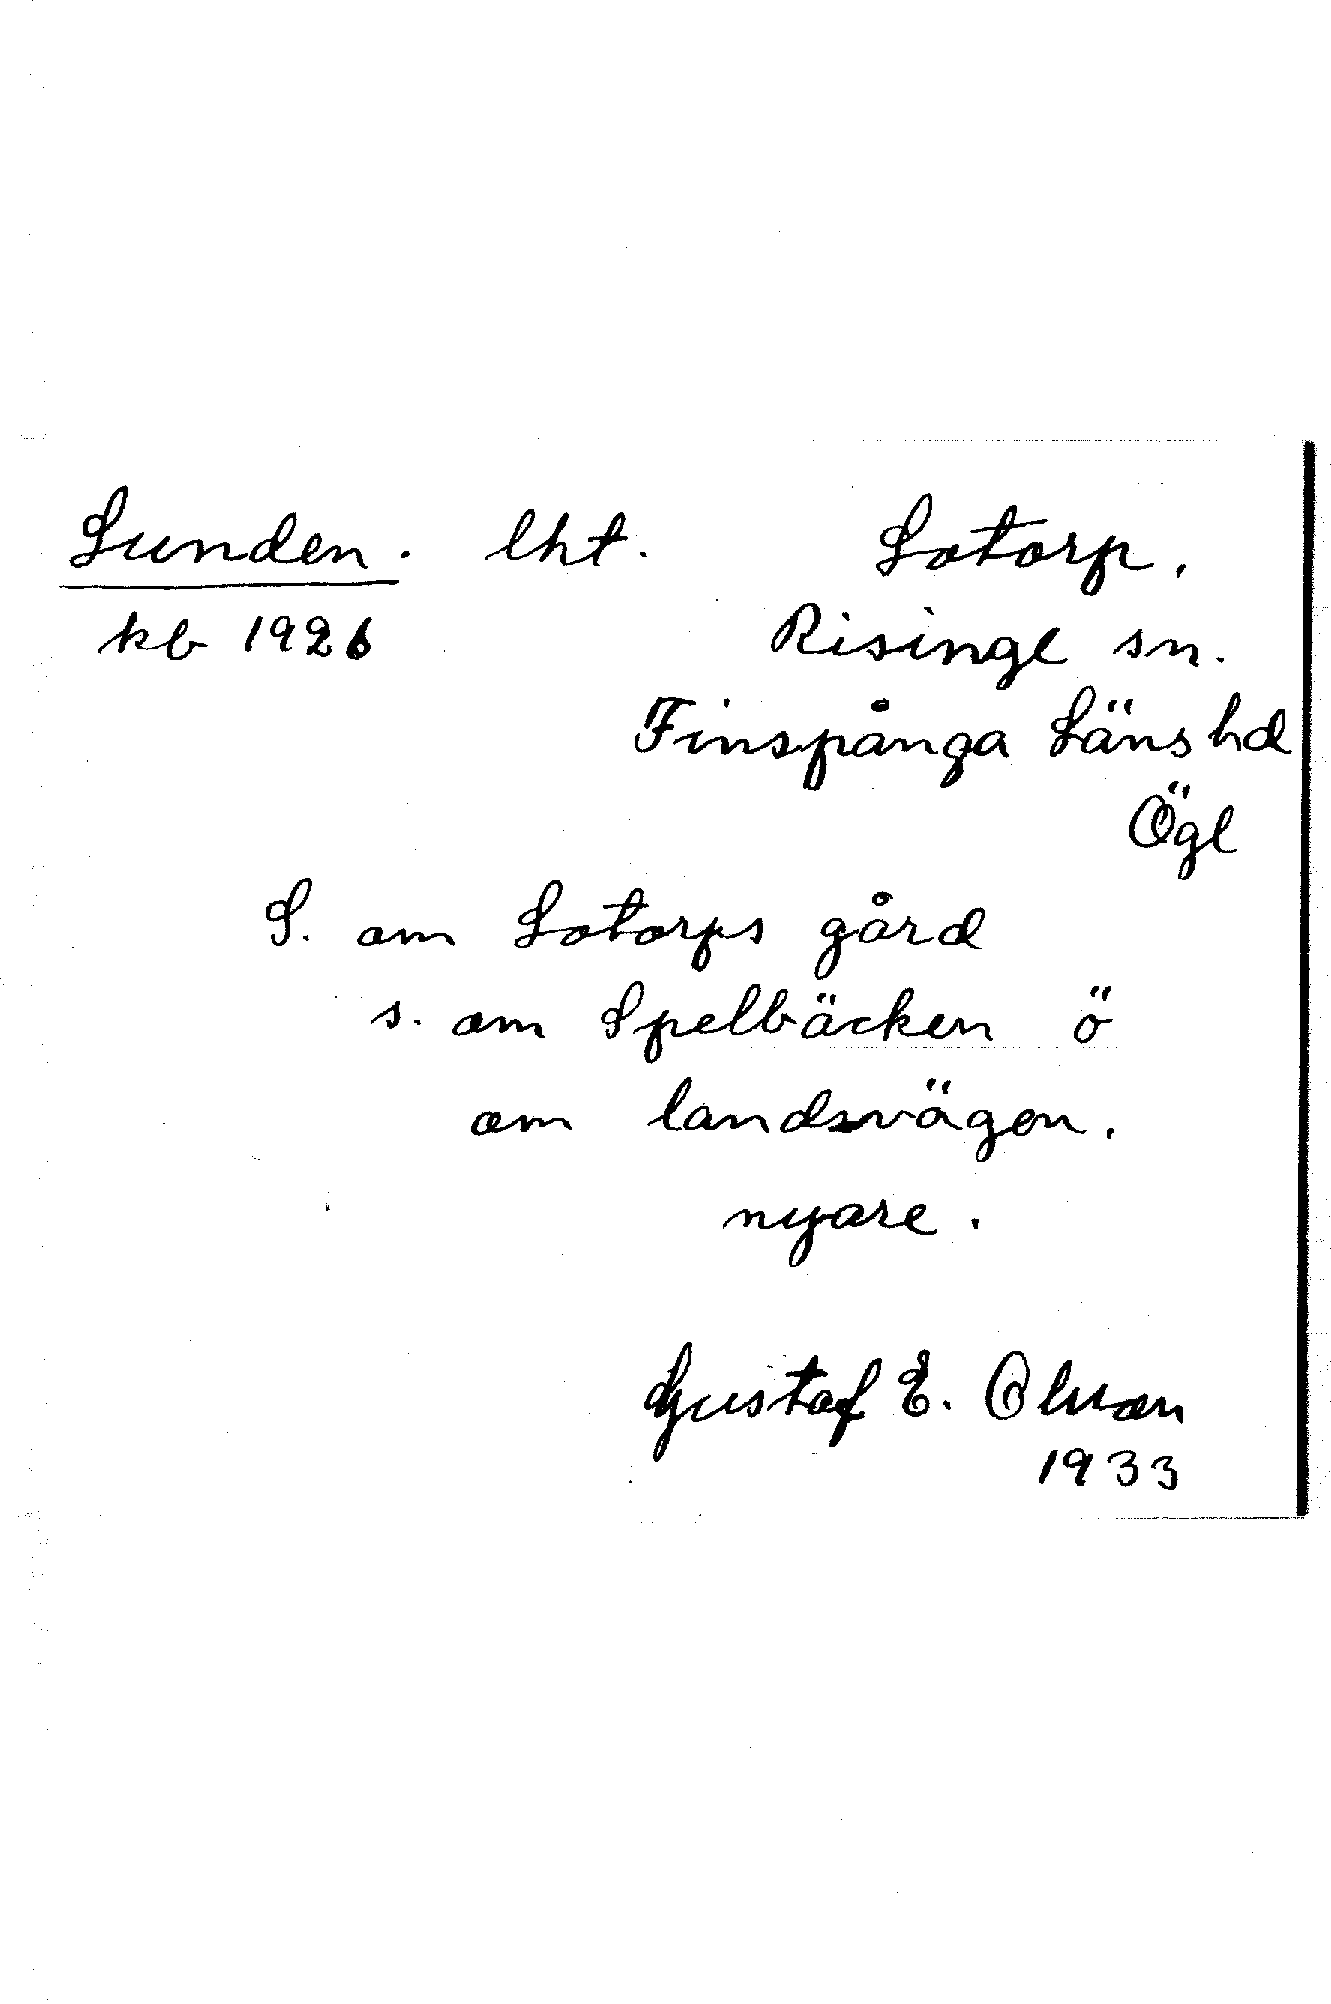 Lunden. lht. Lotorp.
kb 1926 Risinge sn.
Finspånga Läns hd
Ögl
S. om Lotorps gård
s. om Spelbäcken ö
om landsvägen.
nyare.
Gustaf E. Olsson
1933